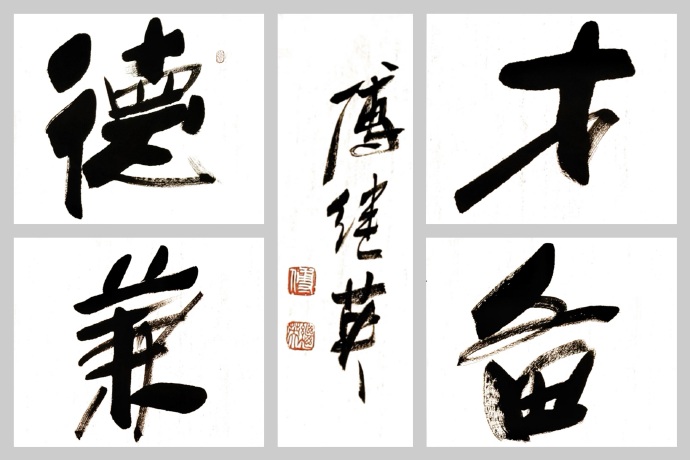 德才
兼备
傅继